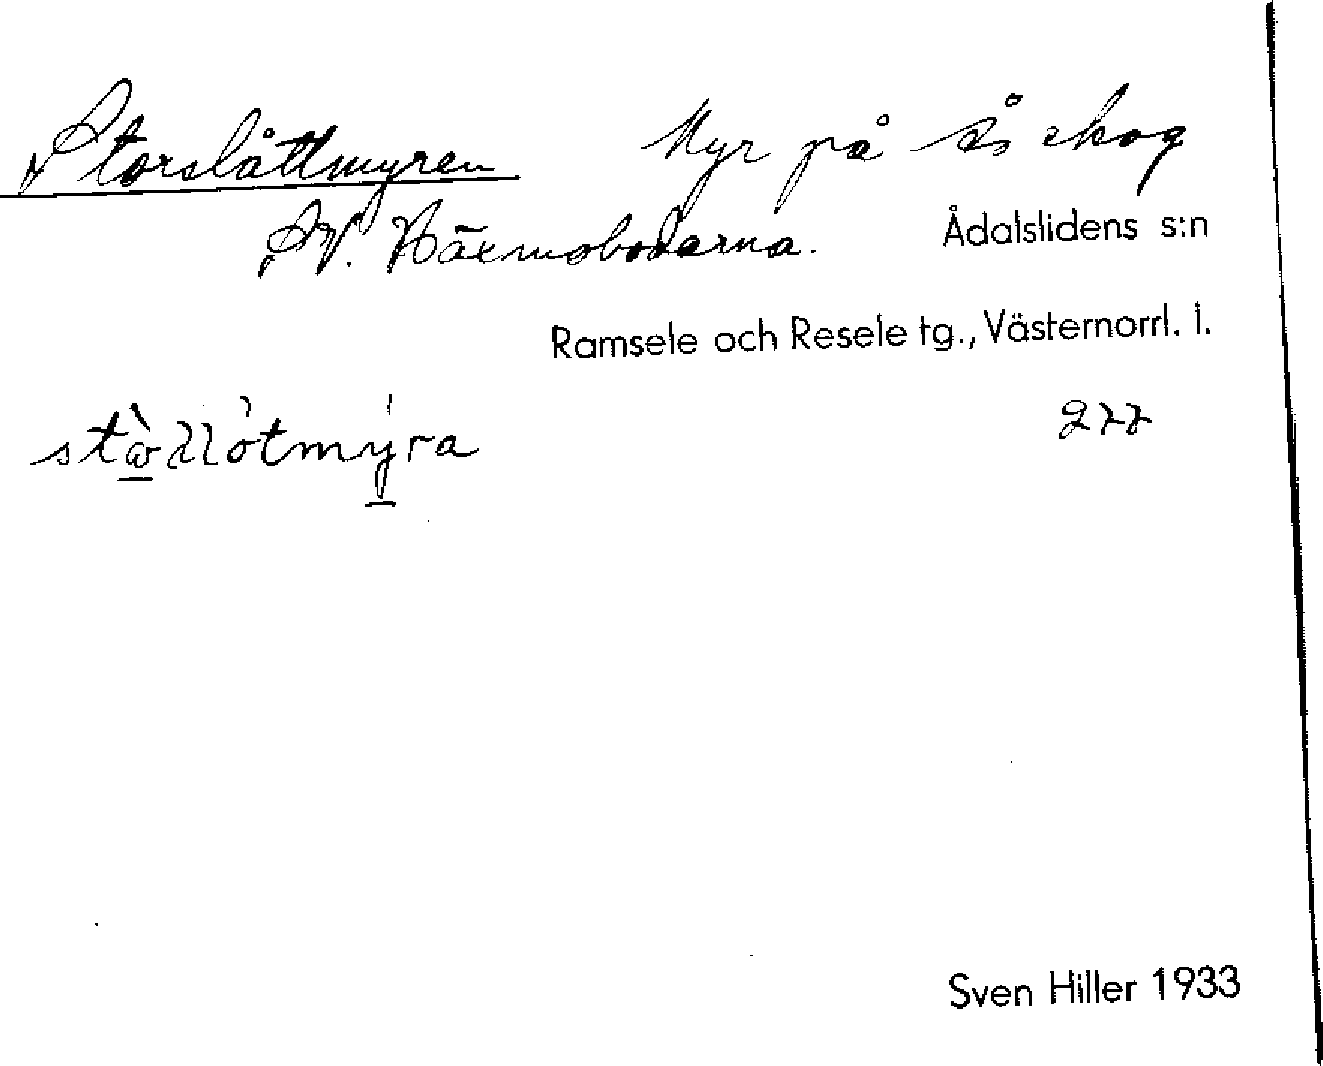 Storslåttmyren Myr på Ås skog
SV. Härnsbodarna. Ådalslidens s:n
Ramsele och Resele tg., Västernorrl. l.
277
Sven Hiller 1933